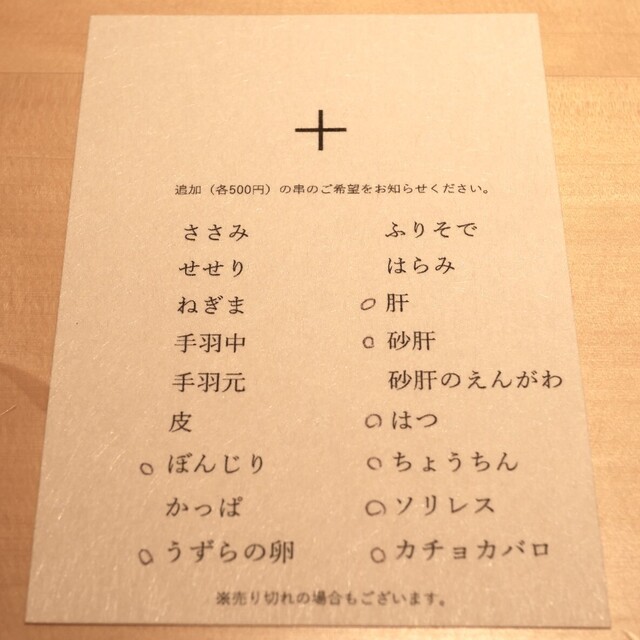 ＋
追加（各500円）の串のご希望をお知らせください。
ささみ
せせり
ねぎま
手羽中
手羽元
皮
○ ぼんじり
かっぱ
○ うずらの卵
ふりそで
はらみ
○ 肝
○ 砂肝
砂肝のえんがわ
○ はつ
○ ちょうちん
○ ソリレス
○ カチョカバロ
※売り切れの場合もございます。